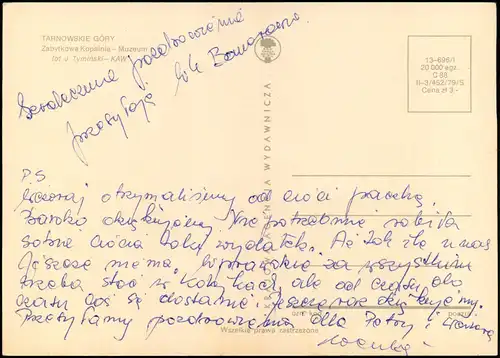 TARNOWSKIE GÓRY
Zabytkowa Kopalnia – Muzeum
fot. J. Tymiński – KAW
Serdeczne pozdrowienia
przesyłają
13-696/I
20.000 egz.
G 88
II-3/452/79/S
Cena zł 3 -
WYDAWNICZA
PS
Wczoraj otrzymaliśmy od cioci paczkę.
Bardzo dziękujemy. Nie potrzebnie robiła
sobie ciocia taki wydatek. Aż tak źle u nas
jeszcze nie ma. Wprawdzie za wszystkim
trzeba stać w kolejkach, ale od czasu do
czasu coś się dostanie. Jeszcze raz dziękujemy.
Przesyłamy pozdrowienia dla
Wszelkie prawa zastrzeżone